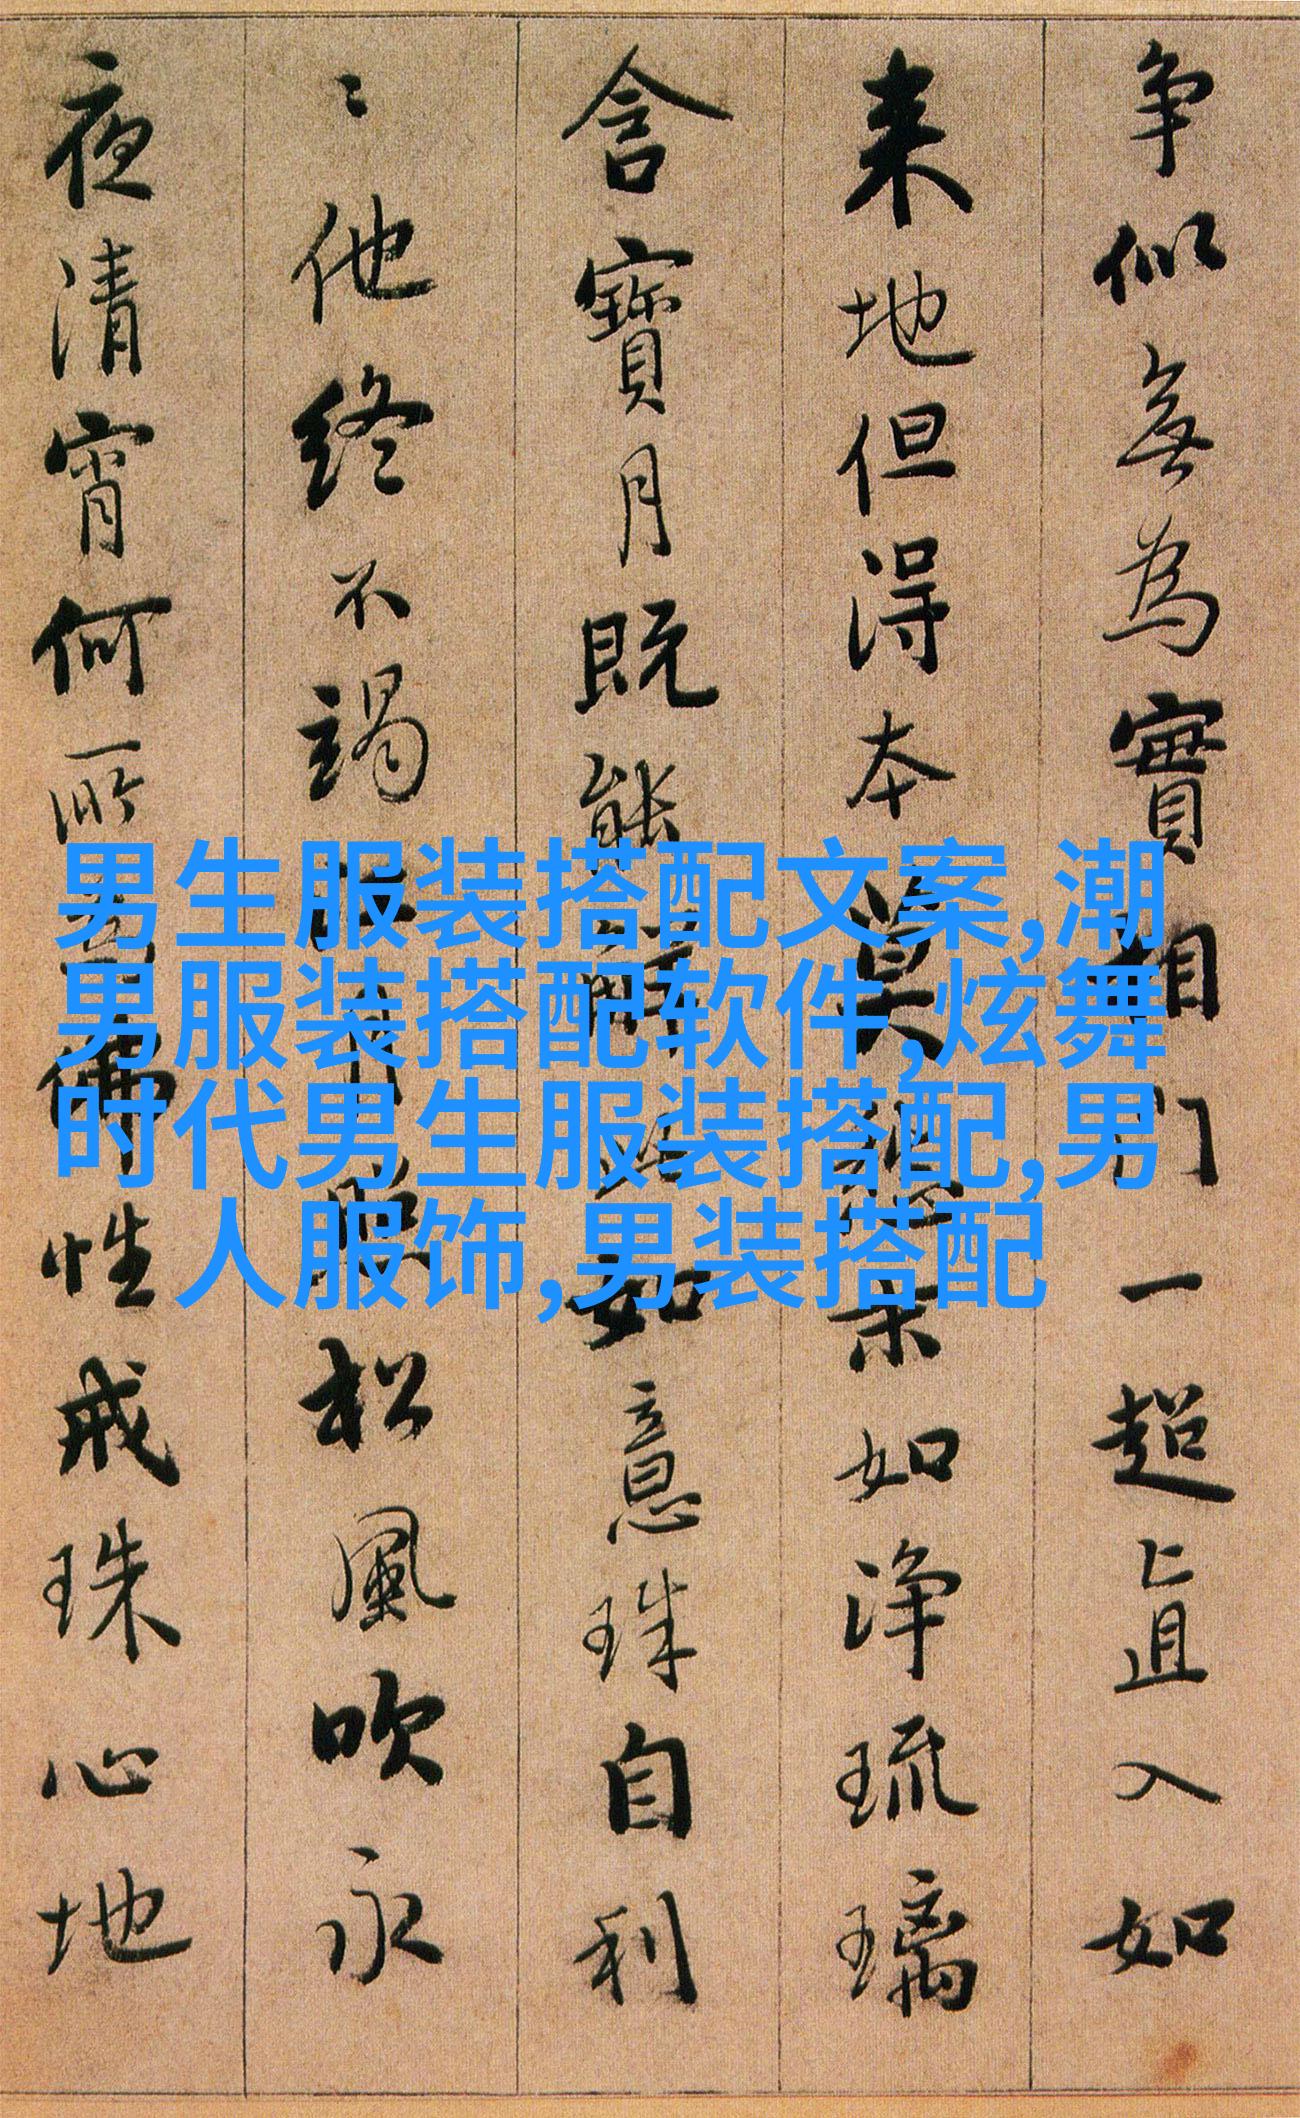 争似無為實相門一超直入如
来地但得本莫愁末如淨琉璃
含寶月既能解此如意珠自利
〻他終不竭江月照松風吹永
夜清宵何所為佛性戒珠心地
男生服装搭配文案,潮
男服装搭配软件,炫舞
时代男生服装搭配,男
人服饰,男装搭配